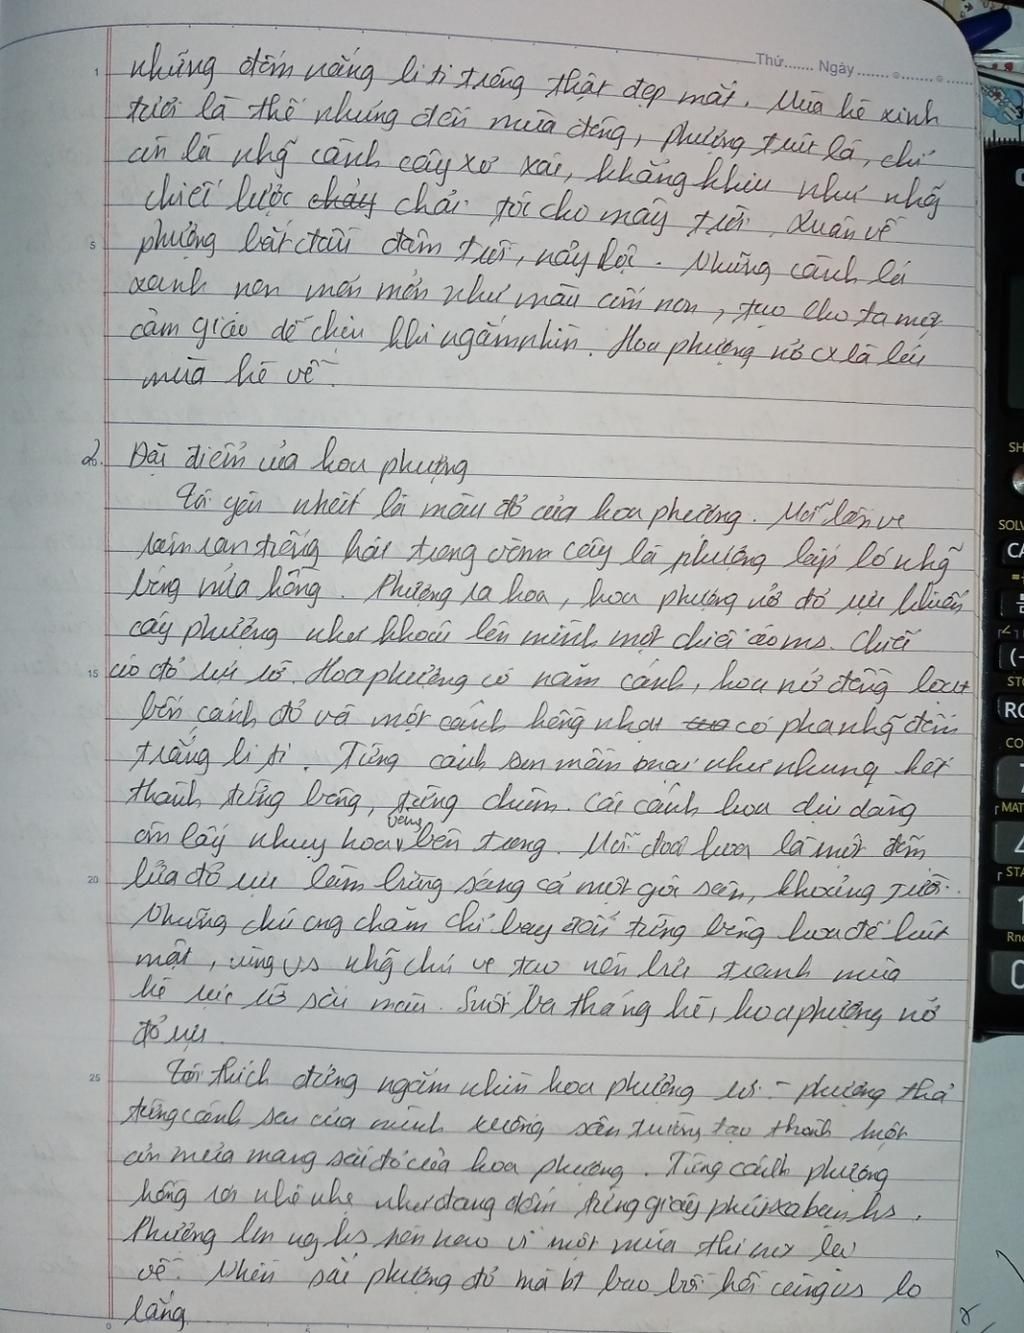 Thứ....... Ngày
những đốm nắng li ti trông thật đẹp mắt. Mùa hè xinh
tươi là thế nhưng đến mùa đông, phượng trút lá, chỉ
còn là nhg̃ cành cây xơ xác, khẳng khiu như nhg̃
chiếc lược chải tóc cho mây trời. Xuân về
phượng bắt đầu đâm trồi, nảy lộc. Những cành lá
xanh non mơn mởn như màu cốm non, tạo cho ta một
cảm giác dễ chịu khi ngắm nhìn. Hoa phượng nở cx là lúc
mùa hè về.
2. Đặc điểm của hoa phượng
Tôi yêu nhất là màu đỏ của hoa phượng. Mỗi lần ve
râm ran tiếng hát trong vòm cây là phượng lấp ló nhg̃
bông hoa hồng. Phượng ra hoa, hoa phượng nở đỏ rực khiến
cây phượng như khoác lên mình một chiếc áo ms. Chiếc
áo đỏ rực rỡ. Hoa phượng có năm cánh, hoa nở đồng loạt
bốn cánh đỏ và một cánh hồng nhạt có pha nhg̃ đốm
trắng li ti. Từng cánh hoa mềm mại như nhung kết
thành từng bông, từng chùm. Các cánh hoa dịu dàng
ôm lấy nhụy hoa vàng bên trong. Mỗi đoá hoa là một đốm
lửa đỏ rực làm bừng sáng cả một góc sân, khoảng trời.
Những chú ong chăm chỉ bay đến từng bông hoa để hút
mật, cùng vs nhg̃ chú ve tạo nên bức tranh mùa
hè rực rỡ sắc màu. Suốt ba tháng hè, hoa phượng nở
đỏ rực.
Tôi thích đứng ngắm nhìn hoa phượng rơi - phượng thả
từng cánh hoa của mình xuống sân trường tạo thành một
cơn mưa mang sắc đỏ của hoa phượng. Từng cánh phượng
hồng rơi nhè nhẹ như đang đếm từng giây phút xa bạn hs.
Phượng
về. Nhìn sắc phượng đỏ mà bt bao bồi hồi cùng vs lo
lắng